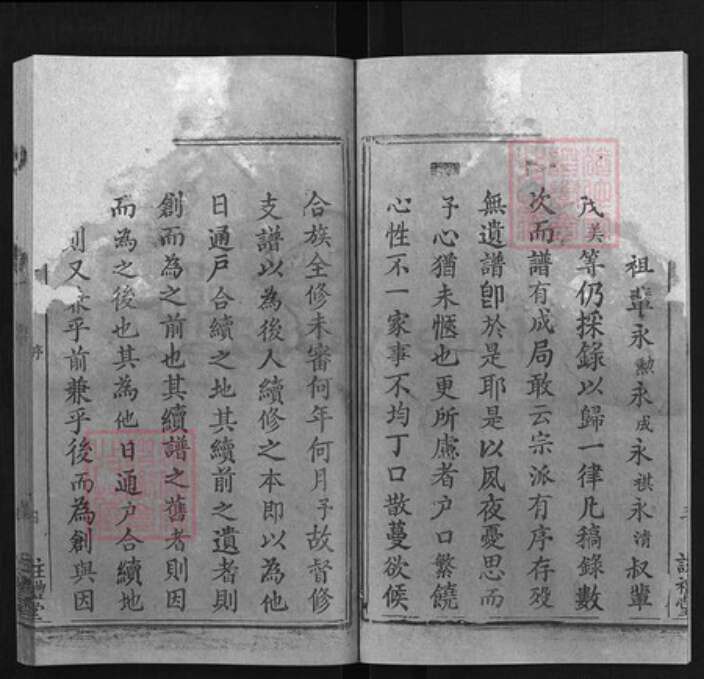 祖輩永勲永成永祺永清叔輩
茂美等仍採錄以歸一律凡稿錄數
次而譜有成局敢云宗派有序存歿
無遺譜卽於是耶是以夙夜憂思而
予心猶未愜也更所慮者户口繁饒
心性不一家事不均丁口散蔓欲候
合族全修未審何年何月予故督修
支譜以為後人續修之本即以為他
日通戸合續之地其續前之遺者則
創而為之前也其續譜之舊者則因
而為之後也其為他日通户合續地
則又兼乎前兼乎後而為創與因
序